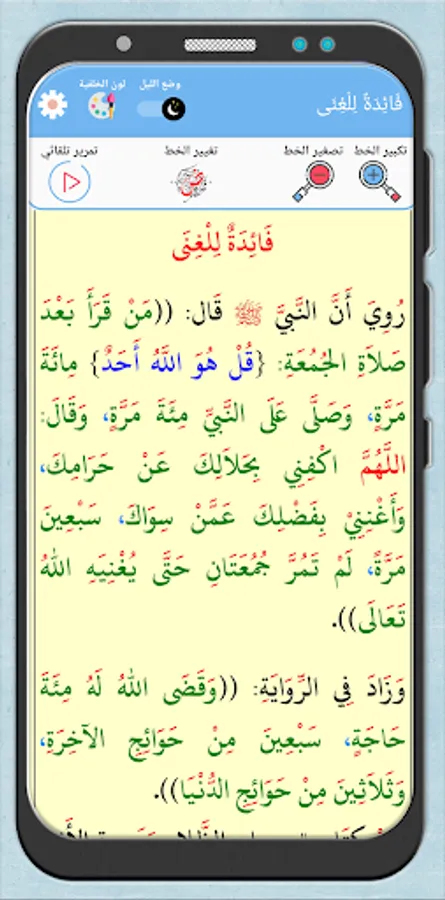 وضع الليل
لون الخلفية
فَائِدَةٌ لِلْغِنَى
تكبير الخط
تصغير الخط
تغيير الخط
تمرير تلقائي
فَائِدَةٌ لِلْغِنَى
رُوِيَ أَنَّ النَّبِيَّ ﷺ قَال: ((مَنْ قَرَأَ بَعْدَ
صَلَاةِ الجُمُعَةِ: {قُلْ هُوَ اللَّهُ أَحَدٌ} مِائَةَ
مَرَّةٍ، وَصَلَّى عَلَى النَّبِيِّ مِئَةَ مَرَّةٍ، وَقَالَ:
اللَّهُمَّ اكْفِنِي بِحَلَالِكَ عَنْ حَرَامِكَ،
وَأَغْنِنِيْ بِفَضْلِكَ عَمَّنْ سِوَاكَ، سَبْعِينَ
مَرَّةً، لَمْ تَمُرَّ جُمُعَتَانِ حَتَّى يُغْنِيَهِ اللهُ
تَعَالَى)).
وَزَادَ فِي الرِّوَايَةِ: ((وَقَضَى اللهُ لَهُ مِئَةَ
حَاجَةٍ، سَبْعِينَ مِنْ حَوَائِجِ الآخِرَةِ،
وَثَلَاثِينَ مِنْ حَوَائِجِ الدُّنْيَا)).